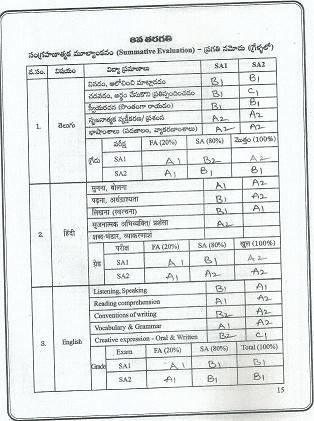 8వ తరగతి
సంగ్రహణాత్మక మూల్యాంకనం (Summative Evaluation) – ప్రగతి నమోదు (గ్రేడ్లలో)
వ.సం. విషయం విద్యా ప్రమాణాలు SA1 SA2
వినడం, ఆలోచించి మాట్లాడడం B1 B1
చదవడం, అర్థం చేసుకొని ప్రతిస్పందించడం B1 C1
స్వీయరచన (సొంతంగా రాయడం) B1 B1
సృజనాత్మక వ్యక్తీకరణ/ ప్రశంస A2 A2
భాషాంశాలు (పదజాలం, వ్యాకరణాంశాలు) A2 A2
1. తెలుగు
గ్రేడు పరీక్ష FA (20%) SA (80%) మొత్తం (100%)
SA1 A1 B2 A2
SA2 A1 B1 B1
सुनना, बोलना A1 A2
पढ़ना, अर्थग्राह्यता B1 A2
लिखना (स्वरचना) B1 A1
सृजनात्मक अभिव्यक्ति/ प्रशंसा A2
शब्द-भंडार, व्याकरणांश
2. हिंदी
ग्रेड परीक्षा FA (20%) SA (80%) कुल (100%)
SA1 A1 B1 A2
SA2 A1 A2 A2
Listening, Speaking B1 A1
Reading comprehension A1 A2
Conventions of writing B2 A2
Vocabulary & Grammar A1 A2
Creative expression - Oral & Written B2 C1
3. English
Grade Exam FA (20%) SA (80%) Total (100%)
SA1 A1 B1 B1
SA2 A1 B1 B1
15